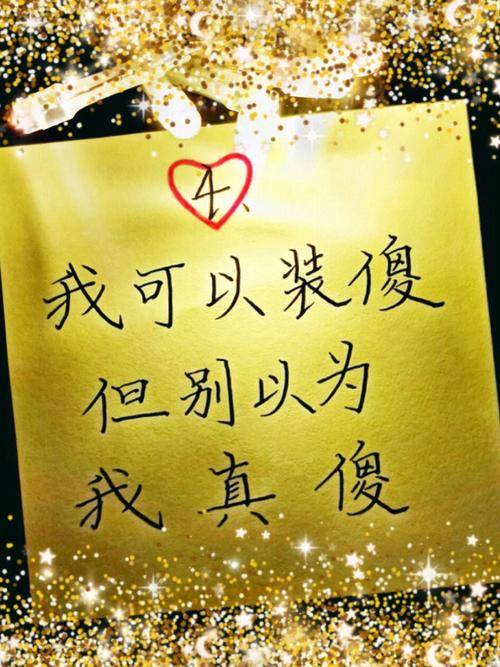 4、
我可以装傻
但别以为
我真傻